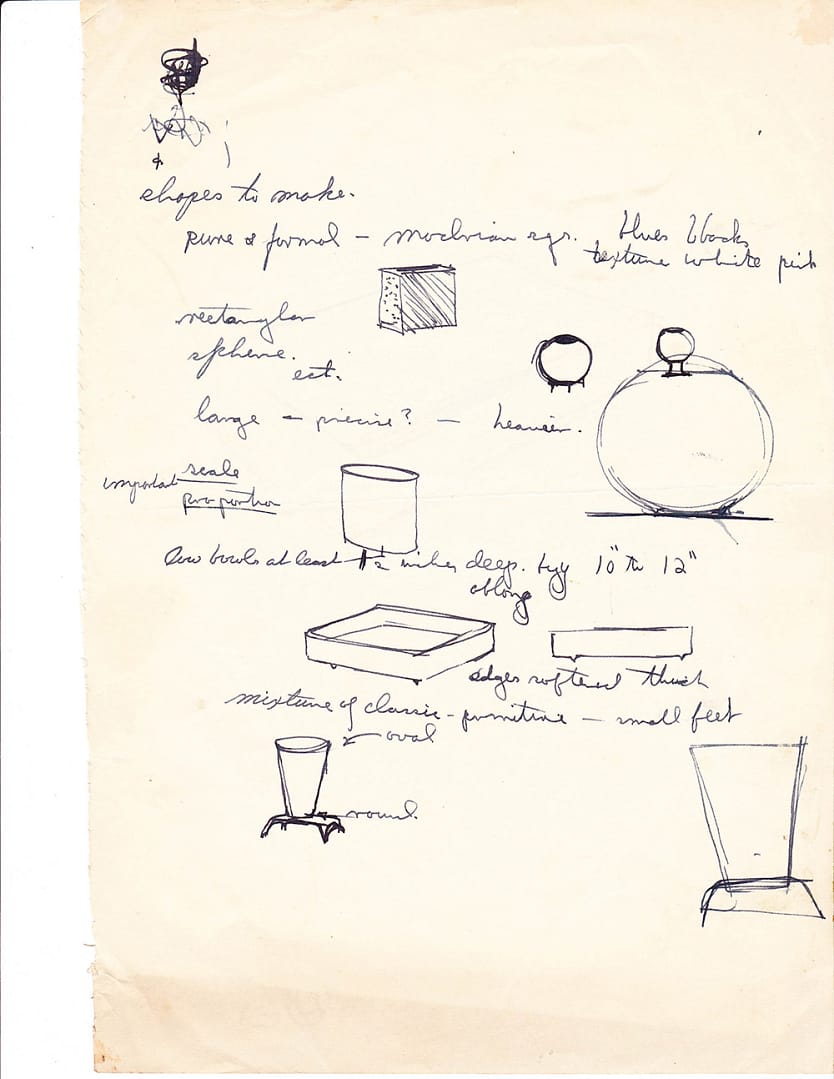 &
shapes to make.
pure & formal – sqs. blues blacks
texture white pink
rectangular
sphere.
ect.
large – precise? – heavier.
important scale
proportion
low bowls at least 2 inches deep. try 10" to 12"
oblong
edges softened thick
mixture of classic – primitive – small feet
oval
round.